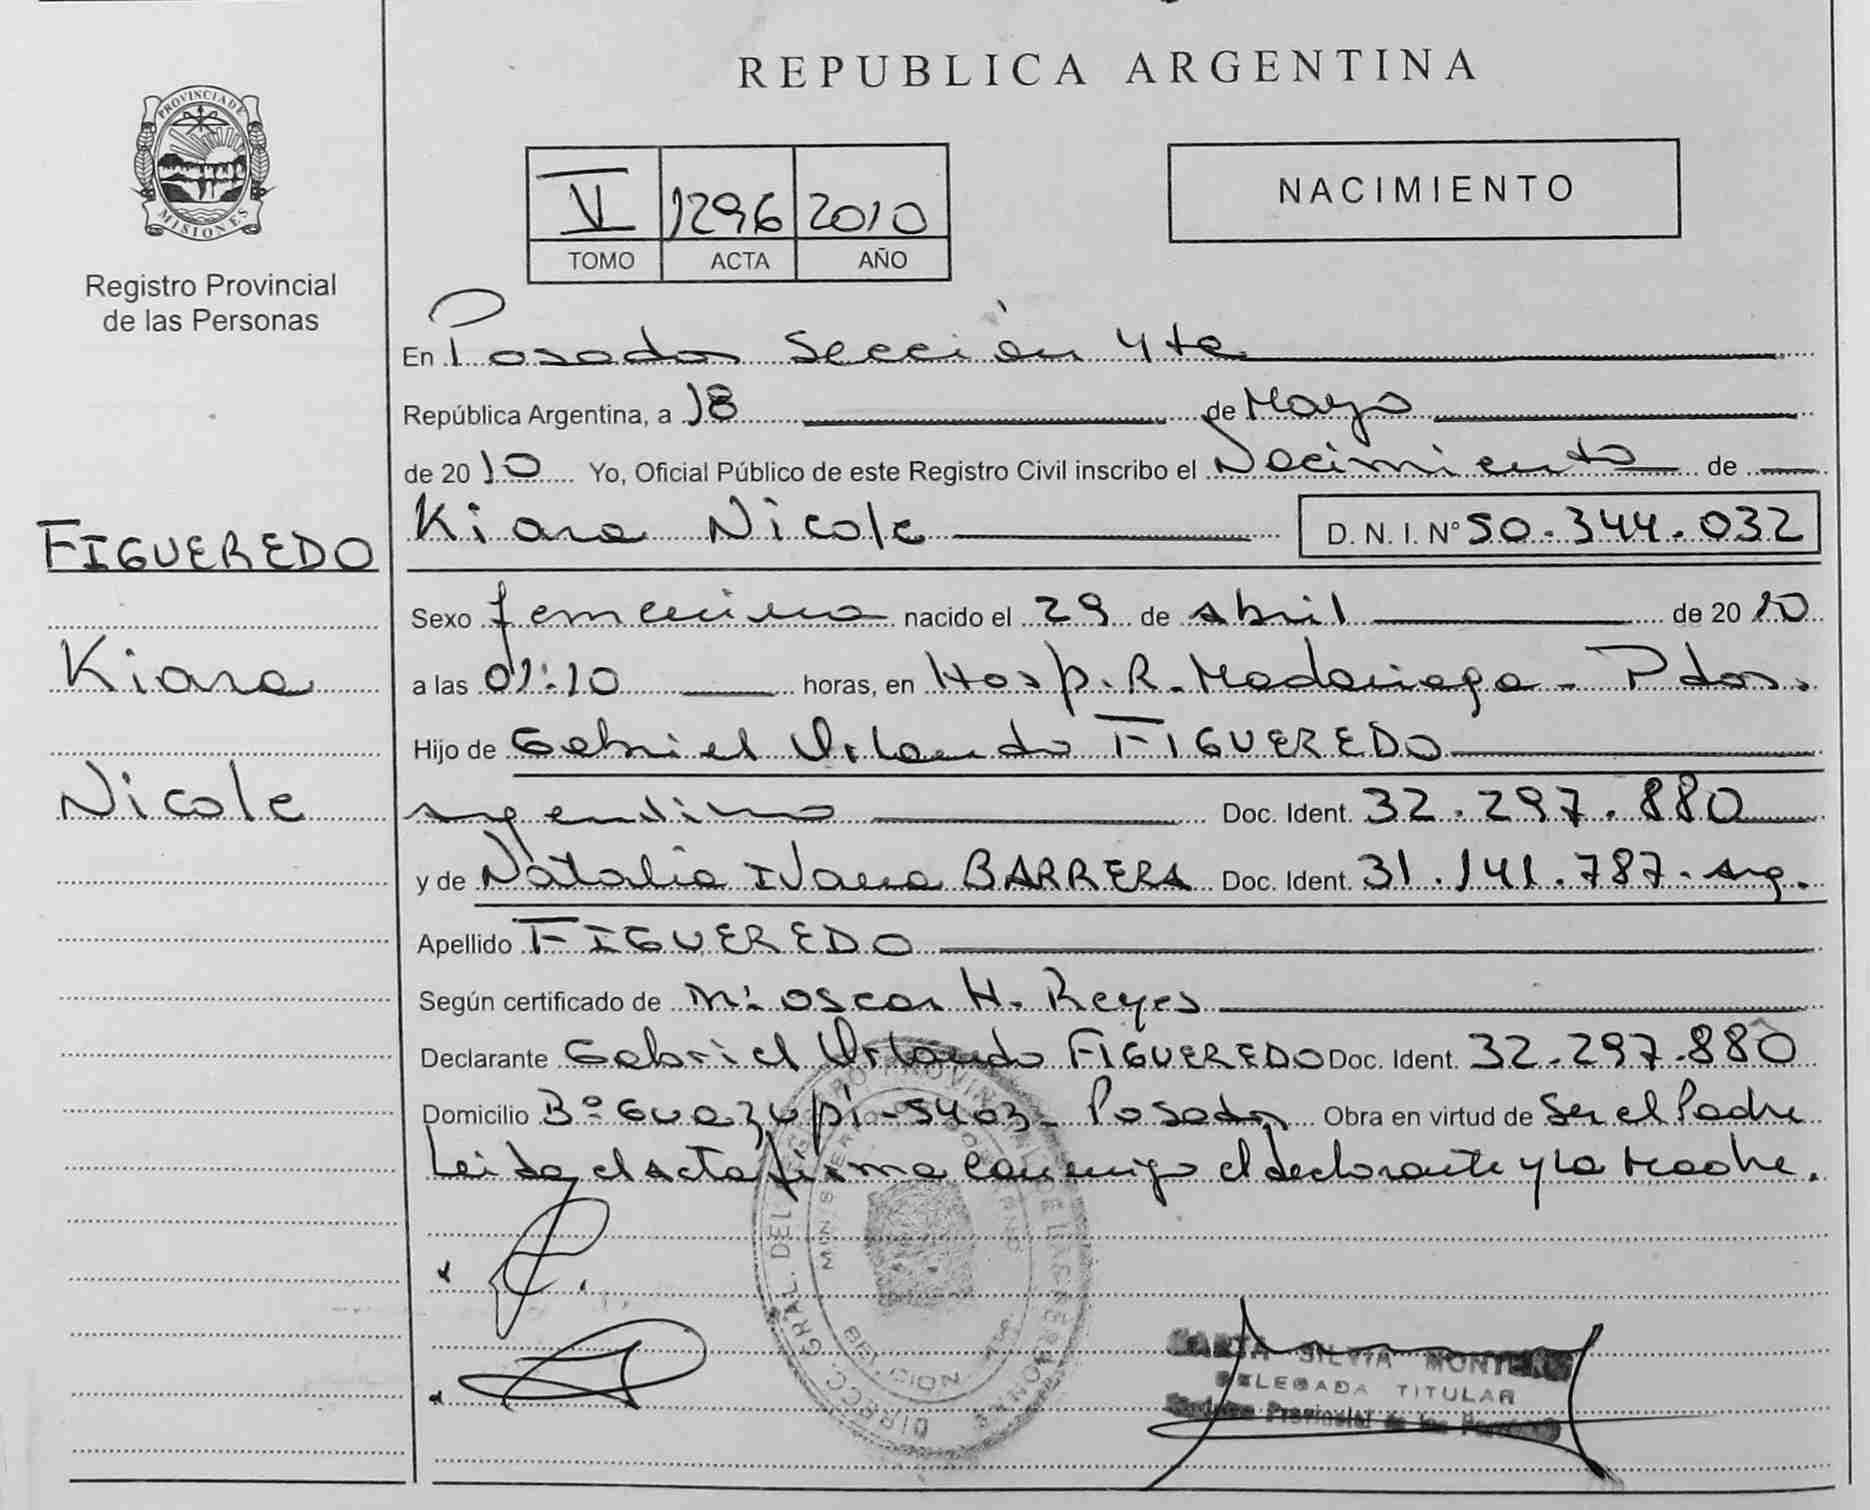 PROVINCIA DE
MISIONES
Registro Provincial
de las Personas
FIGUEREDO
Kiara
Nicole
REPUBLICA ARGENTINA
VI 1296 2010
TOMO ACTA AÑO
NACIMIENTO
En Posadas Sección 4ta
República Argentina, a 18 de Mayo
de 2010 Yo, Oficial Público de este Registro Civil inscribo el Nacimiento de
Kiara Nicole D. N. I. Nº 50.344.032
Sexo femenino nacido el 29 de Abril de 2010
a las 01:10 horas, en Hosp. R. Madariaga - Pdas.
Hijo de Gabriel Orlando FIGUEREDO
argentino Doc. Ident. 32.297.880
y de Natalia Ivana BARRERA Doc. Ident. 31.141.787 - arg.
Apellido FIGUEREDO
Según certificado de Oscar H. Reyes
Declarante Gabriel Orlando FIGUEREDO Doc. Ident. 32.297.880
Domicilio Bº Guazupi - 5403 - Posadas Obra en virtud de Ser el Padre
Leida el acta firma conmigo el declarante y la Madre.
DIRECC. GRAL. DEL REGISTRO PROVINCIAL DE LAS PERSONAS
MINISTERIO DE GOBIERNO
MARTA SILVIA MONTERO
DELEGADA TITULAR
Registro Provincial de las Personas